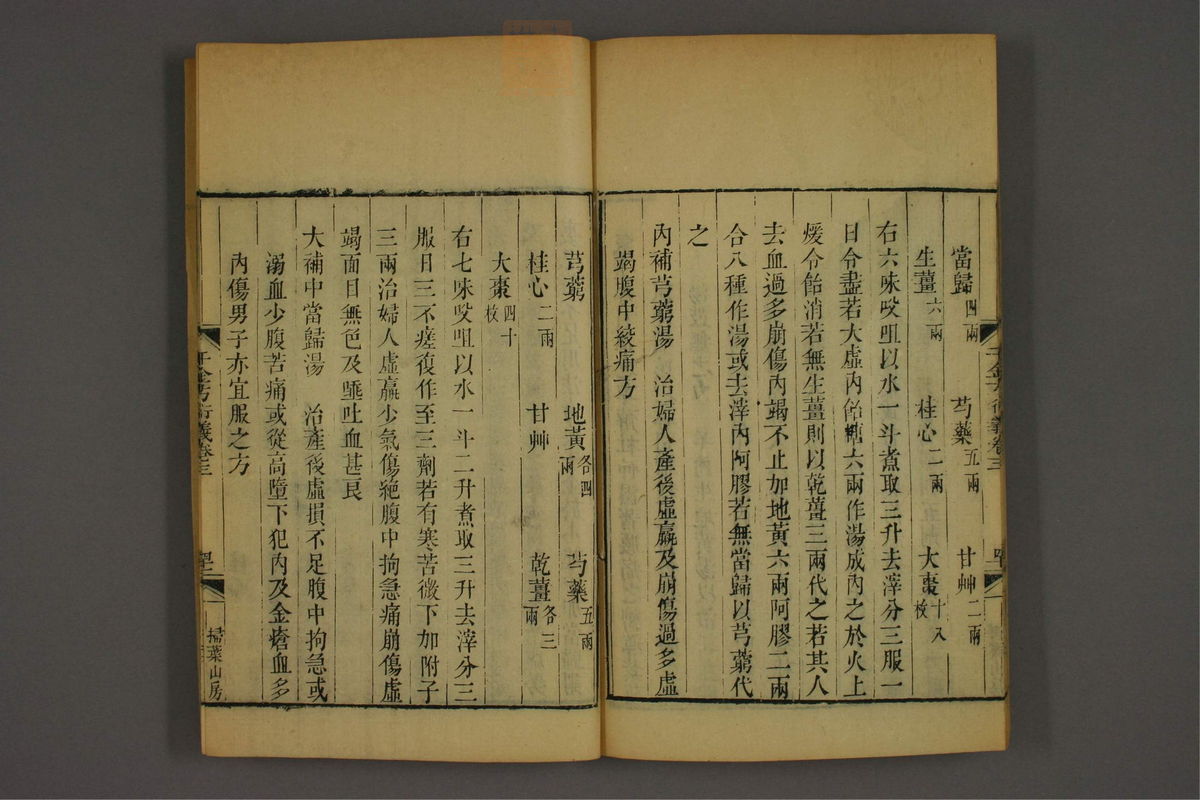 當歸四兩 芍藥五兩 甘艸二兩
生薑六兩 桂心二兩 大棗十八枚
右六味㕮咀以水一斗煮取三升去滓分三服一
日令盡若大虛內飴糖六兩作湯成內之於火上
煖令飴消若無生薑則以乾薑三兩代之若其人
去血過多崩傷內竭不止加地黃六兩阿膠二兩
合八種作湯或去滓內阿膠若無當歸以芎藭代
之
內補芎藭湯 治婦人產後虛羸及崩傷過多虛
竭腹中㽲痛方
芎藭 地黃各四兩 芍藥五兩
桂心二兩 甘艸 乾薑各三兩
大棗四十枚
右七味㕮咀以水一斗二升煮取三升去滓分三
服日三不瘥復作至三劑若有寒苦微下加附子
三兩治婦人虛羸少氣傷絕腹中拘急痛崩傷虛
竭面目無色及唾吐血甚良
大補中當歸湯 治產後虛損不足腹中拘急或
溺血少腹苦痛或從高墮下犯內及金瘡血多
內傷男子亦宜服之方
千金方衍義卷三
掃葉山房